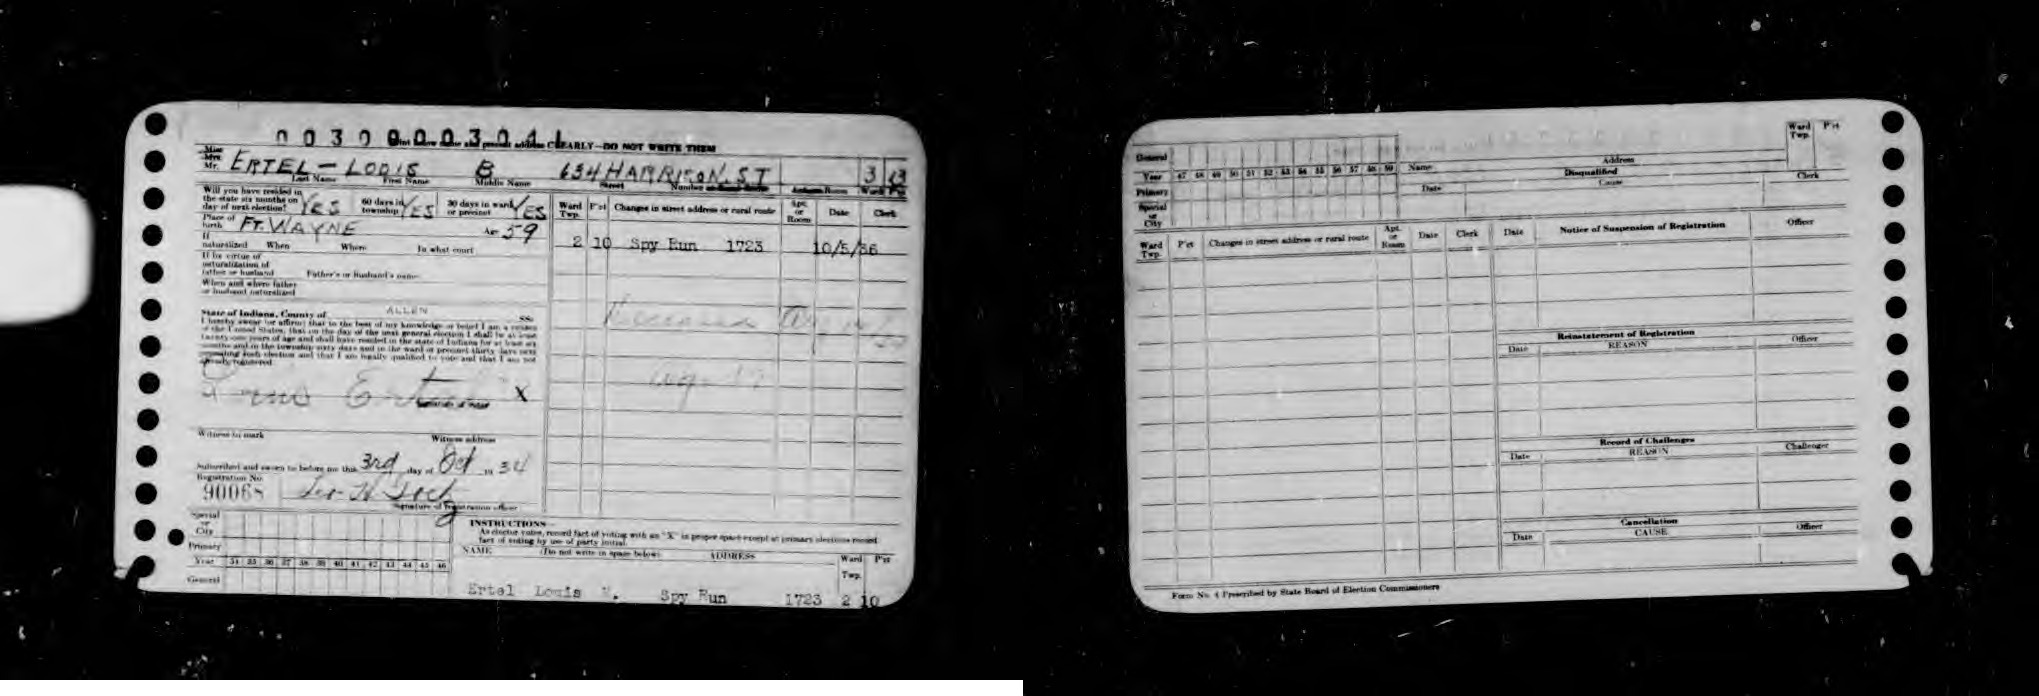 Print below name and present address CLEARLY—DO NOT WRITE THEM
Miss
Mrs.
Mr.
ERTEL — LOUIS B 634 HARRISON ST 3 13
Last Name First Name Middle Name Street Number Ward P'ct
Will you have resided in
the state six months on
day of next election? YES
60 days in
township YES
30 days in ward
or precinct YES
Place of
birth FT. WAYNE Age 59
If
naturalized When Where In what court
If by virtue of
naturalization of
father or husband Father's or husband's name
When and where father
or husband naturalized
State of Indiana, County of ALLEN ss:
I hereby swear (or affirm) that to the best of my knowledge or belief I am a citizen
of the United States, that on the day of the next general election I shall be at least
twenty-one years of age and shall have resided in the state of Indiana for at least six
months and in the township sixty days and in the ward or precinct thirty days next
preceding such election and that I am legally qualified to vote and that I am not
already registered
Louis Ertel X
Signature of voter
Witness to mark Witness address
Subscribed and sworn to before me this 3rd day of Oct 19 34
Registration No.
90068
Signature of registration officer
Special
or
City
Primary
Year 34 35 36 37 38 39 40 41 42 43 44 45 46
General
Ward
Twp.
P'ct
Changes in street address or rural route
Apt.
or
Room
Date
Clerk
2 10 Spy Run 1723 10/5/36
INSTRUCTIONS—
As elector votes, record fact of voting with an "X" in proper space except at primary elections record
fact of voting by use of party initial.
NAME (Do not write in space below) ADDRESS Ward
Twp.
P'ct
Ertel Louis Spy Run 1723 2 10
General
Year 47 48 49 50 51 52 53 54 55 56 57 58 59
Primary
Special
or
City
Name Address Ward
Twp.
P'ct
Disqualified
Date Cause Clerk
Ward
Twp.
P'ct
Changes in street address or rural route
Apt.
or
Room
Date
Clerk
Date Notice of Suspension of Registration Officer
Reinstatement of Registration
Date REASON Officer
Record of Challenges
Date REASON Challenger
Cancellation
Date CAUSE Officer
Form No. 4 Prescribed by State Board of Election Commissioners